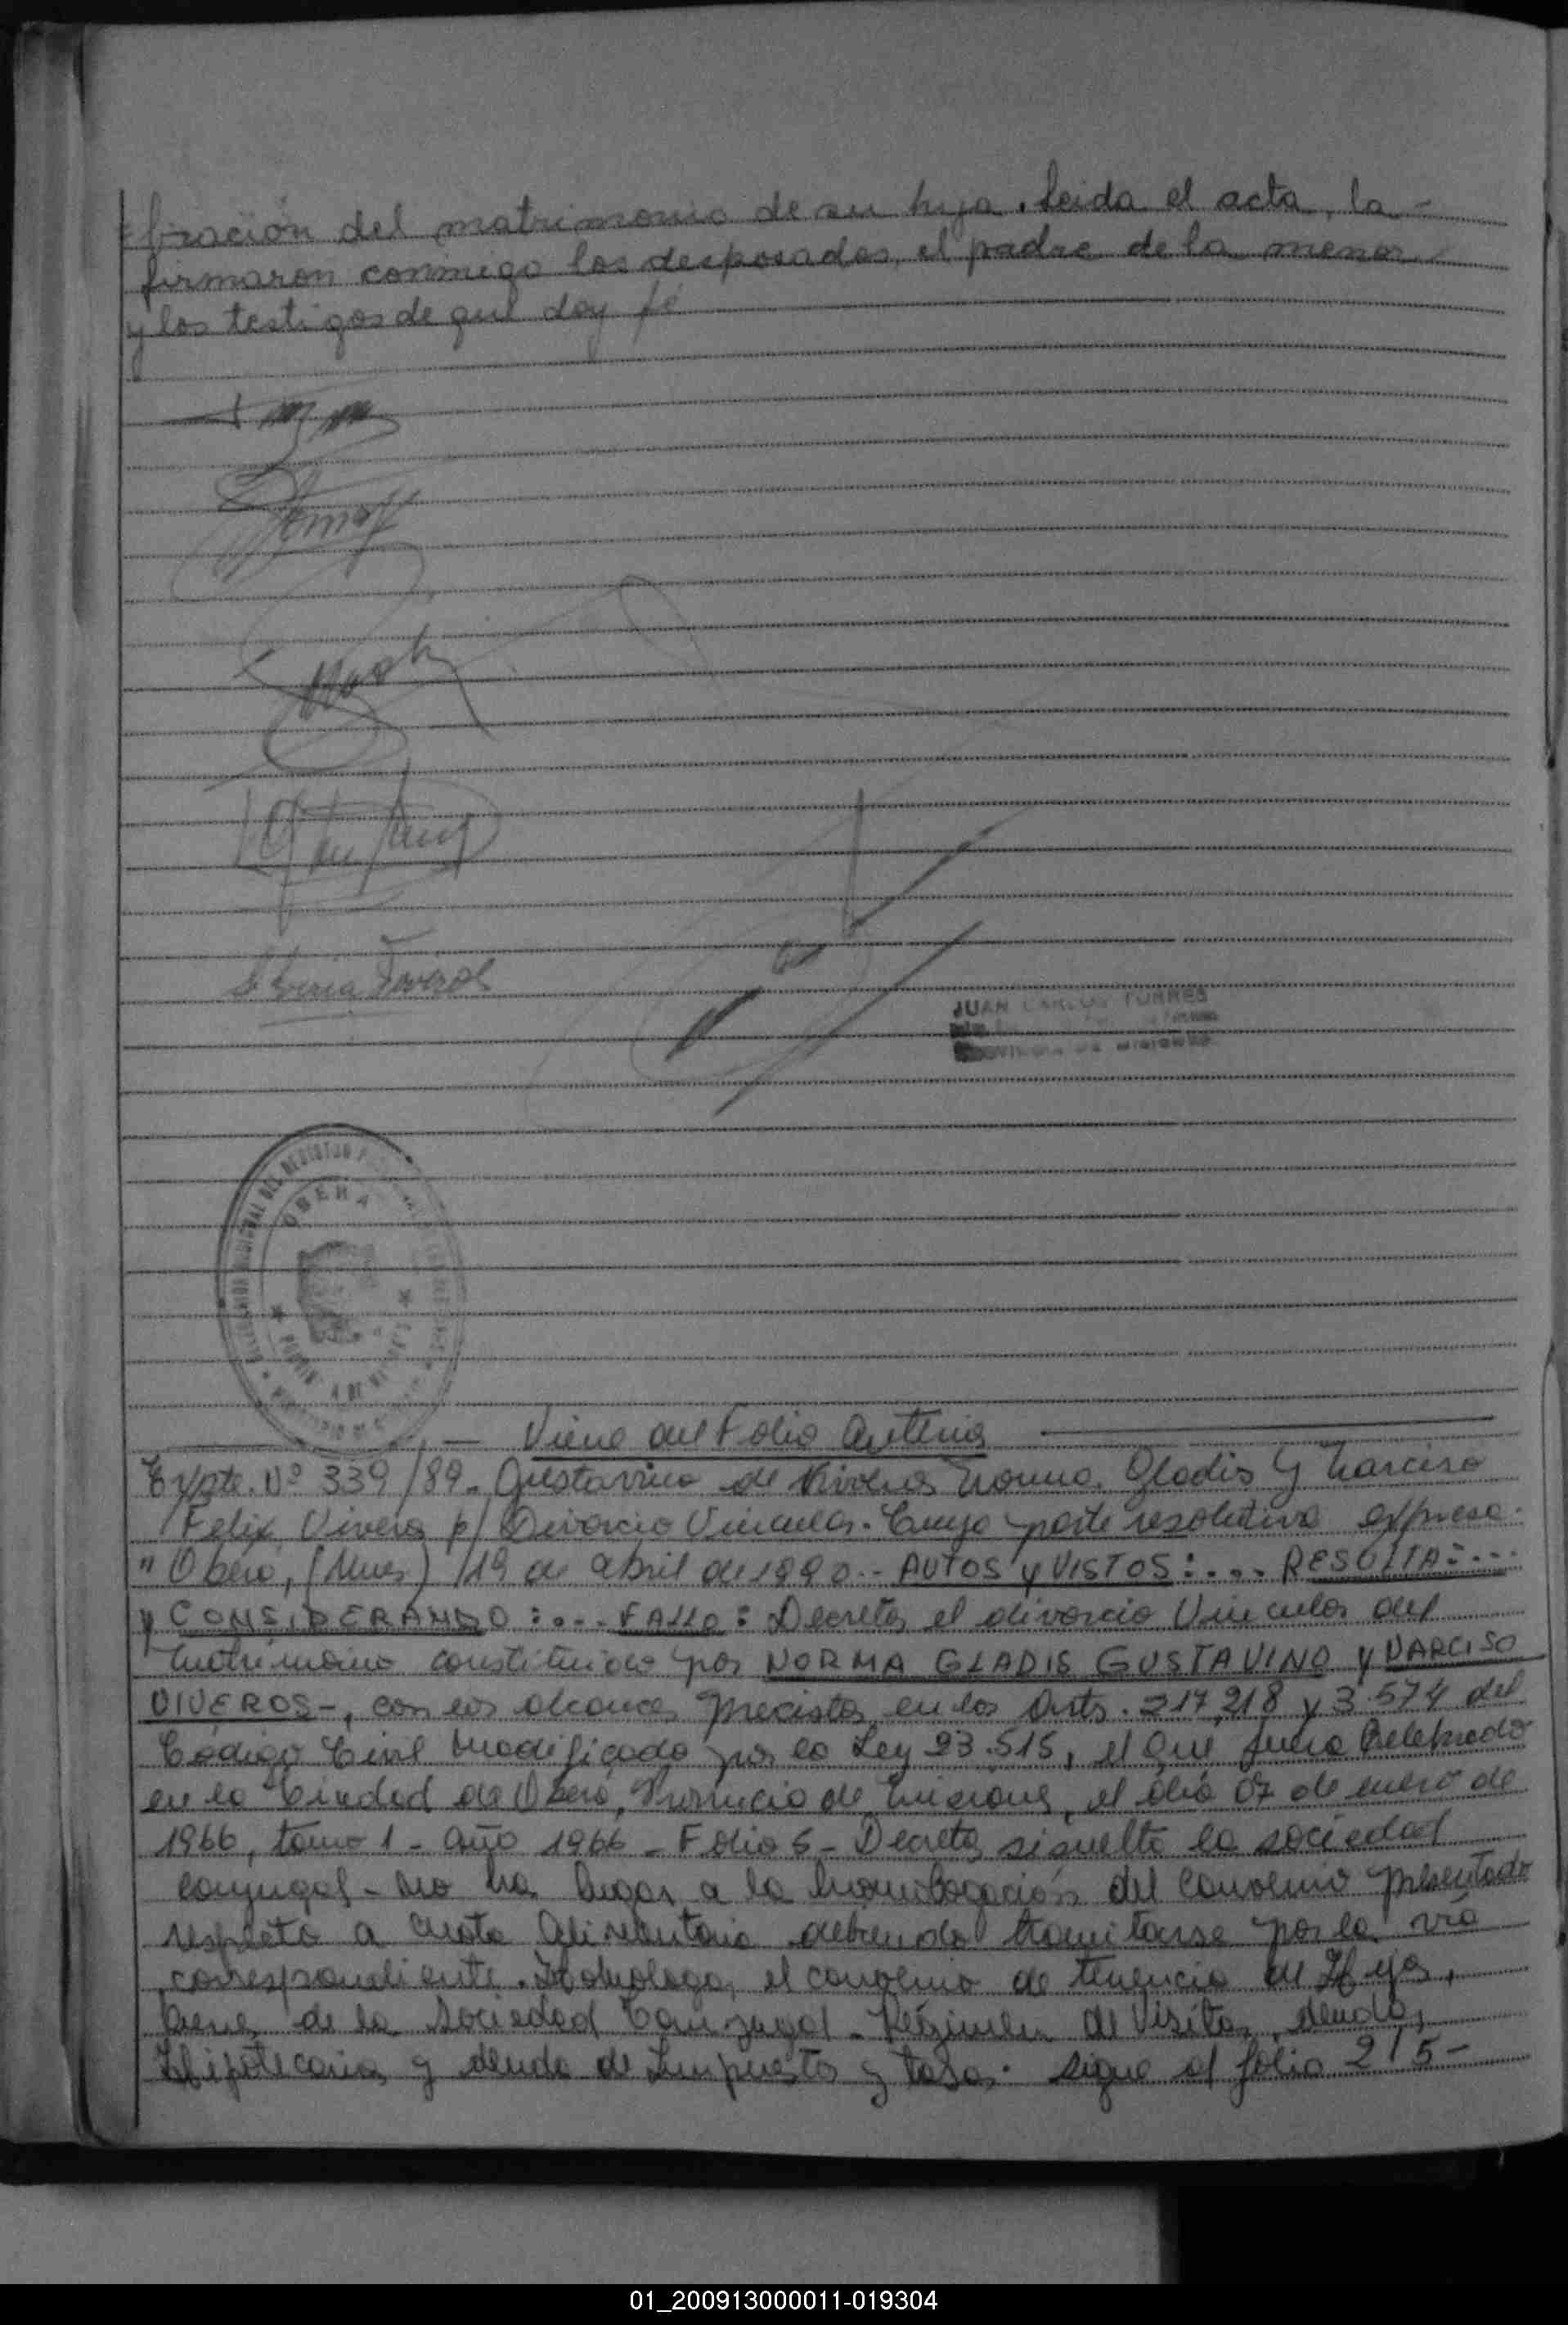 bración del matrimonio de su hija. Leida el acta, la -
firmaron conmigo los desposados, el padre de la menor
y los testigos de que doy fé
JUAN CARLOS TORRES
PROVINCIA DE MISIONES
OBERA
— Viene del Folio Anterior
Expte. Nº 339/89. Gustavino de Viveros Norma Gladis y Narciso
Felix Viveros p/ Divorcio Vincular. Cuya parte resolutiva expresa.
" Oberá, (Mnes) 19 de abril de 1990.- AUTOS y VISTOS:.... RESULTA:...
y CONSIDERANDO:.... FALLO: Decretar el divorcio Vincular del
Matrimonio constituido por NORMA GLADIS GUSTAVINO y NARCISO
VIVEROS-, con los alcances previstos en los Arts. 217, 218 y 3.574 del
Código Civil modificado por la Ley 23.515, el que fuera celebrado
en la Ciudad de Oberá, Provincia de Misiones, el día 07 de enero de
1966, tomo 1 - año 1966 - Folio 5 - Decretar disuelta la sociedad
conyugal - No ha lugar a la homologación del Convenio presentado
respecto a cuota alimentaria debiendo tramitarse por la vía
correspondiente. Homologar el convenio de tenencia de Hijos,
bienes de la Sociedad Conyugal - Régimen de Visitas, deudas
Hipotecarias y deuda de Impuestos y tasas. sigue al folio 215-
01_200913000011-019304